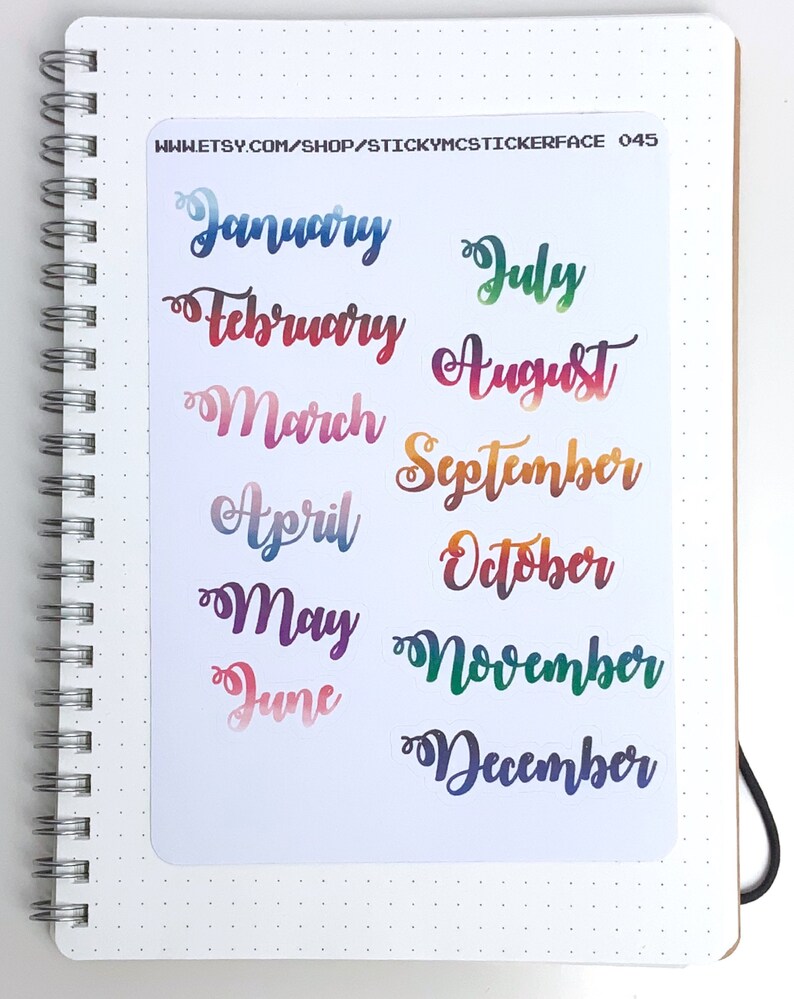 WWW.ETSY.COM/SHOP/STICKYMCSTICKERFACE 045
January
February
March
April
May
June
July
August
September
October
November
December